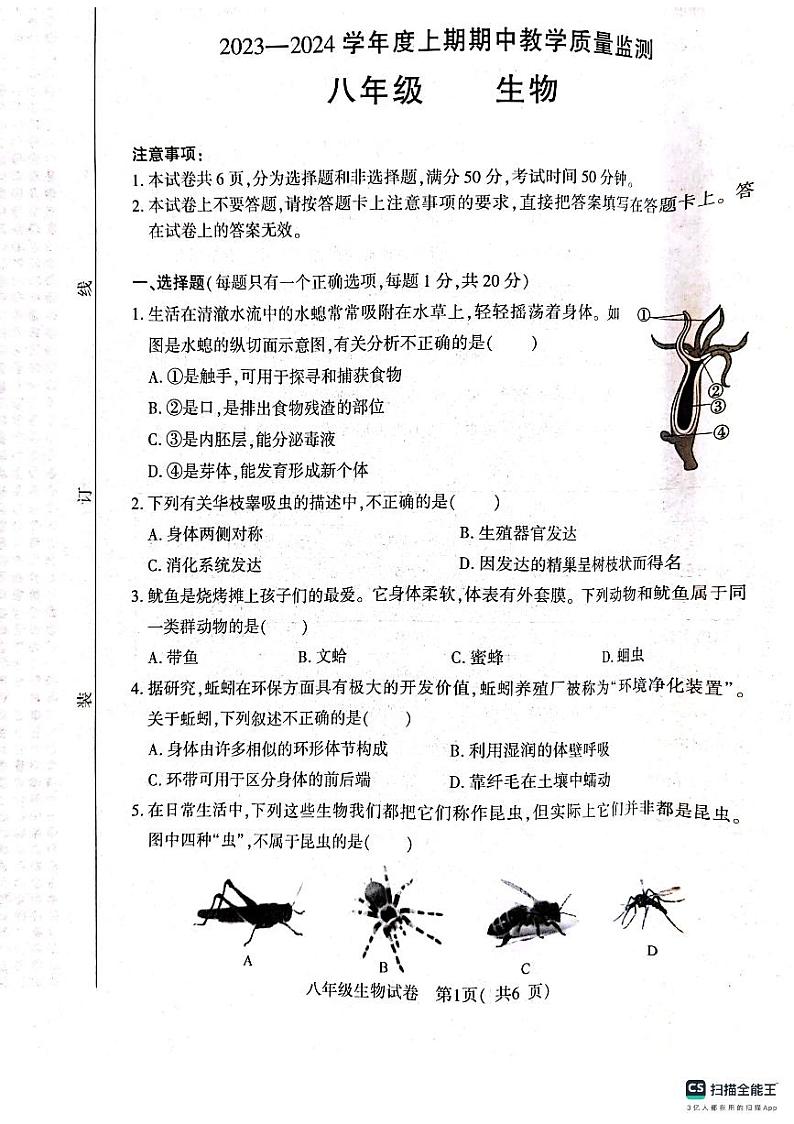 2023—2024学年度上期期中教学质量监测
八年级 生物
注意事项:
1.本试卷共6页,分为选择题和非选择题,满分50分,考试时间50分钟。
2.本试卷上不要答题,请按答题卡上注意事项的要求,直接把答案填写在答题卡上。答
在试卷上的答案无效。
一、选择题(每题只有一个正确选项,每题1分,共20分)
1.生活在清澈水流中的水螅常常吸附在水草上,轻轻摇荡着身体。如
图是水螅的纵切面示意图,有关分析不正确的是( )
A.①是触手,可用于探寻和捕获食物
B.②是口,是排出食物残渣的部位
C.③是内胚层,能分泌毒液
D.④是芽体,能发育形成新个体
①
②
③
④
2.下列有关华枝睾吸虫的描述中,不正确的是( )
A.身体两侧对称 B.生殖器官发达
C.消化系统发达 D.因发达的精巢呈树枝状而得名
3.鱿鱼是烧烤摊上孩子们的最爱。它身体柔软,体表有外套膜。下列动物和鱿鱼属于同
一类群动物的是( )
A.带鱼 B.文蛤 C.蜜蜂 D.蛔虫
4.据研究,蚯蚓在环保方面具有极大的开发价值,蚯蚓养殖厂被称为“环境净化装置”。
关于蚯蚓,下列叙述不正确的是( )
A.身体由许多相似的环形体节构成 B.利用湿润的体壁呼吸
C.环带可用于区分身体的前后端 D.靠纤毛在土壤中蠕动
5.在日常生活中,下列这些生物我们都把它们称作昆虫,但实际上它们并非都是昆虫。
图中四种“虫”,不属于昆虫的是( )
A B C D
八年级生物试卷 第1页( 共6 页)
线
订
装
CS 扫描全能王
3亿人都在用的扫描App